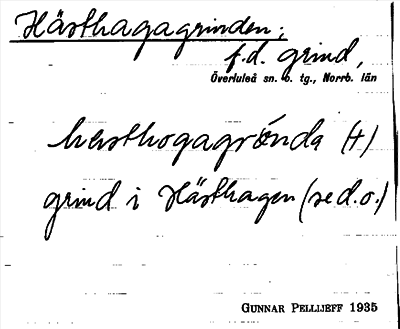 Hästhagagrinden;
f.d. grind,
Överluleå sn. o. tg., Norrb. län
hæsthogagrǿnda (+)
grind i Hästhagen (se d.o.)
GUNNAR PELLIJEFF 1935